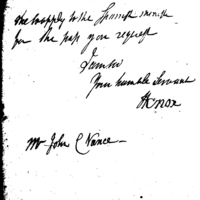 to apply to the Spanish minister
for the pass you request
I am Sir
Your humble Servant
HKnox
Mr John C Nance